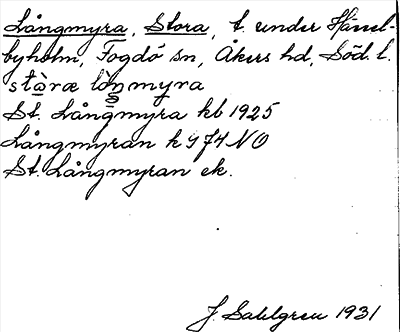 Långmyra, Stora, t. under Hässel-
byholm, Fogdö sn, Åkers hd, Söd. l.
stòræ låŋmyra
St. Långmyra kb 1925
Långmyran k 474 NO
St. Långmyran ek.
J. Sahlgren 1931